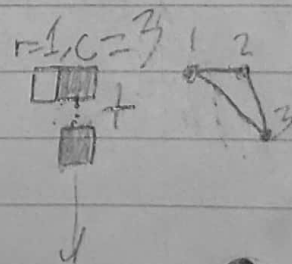 r=1, c=3
1 2
3